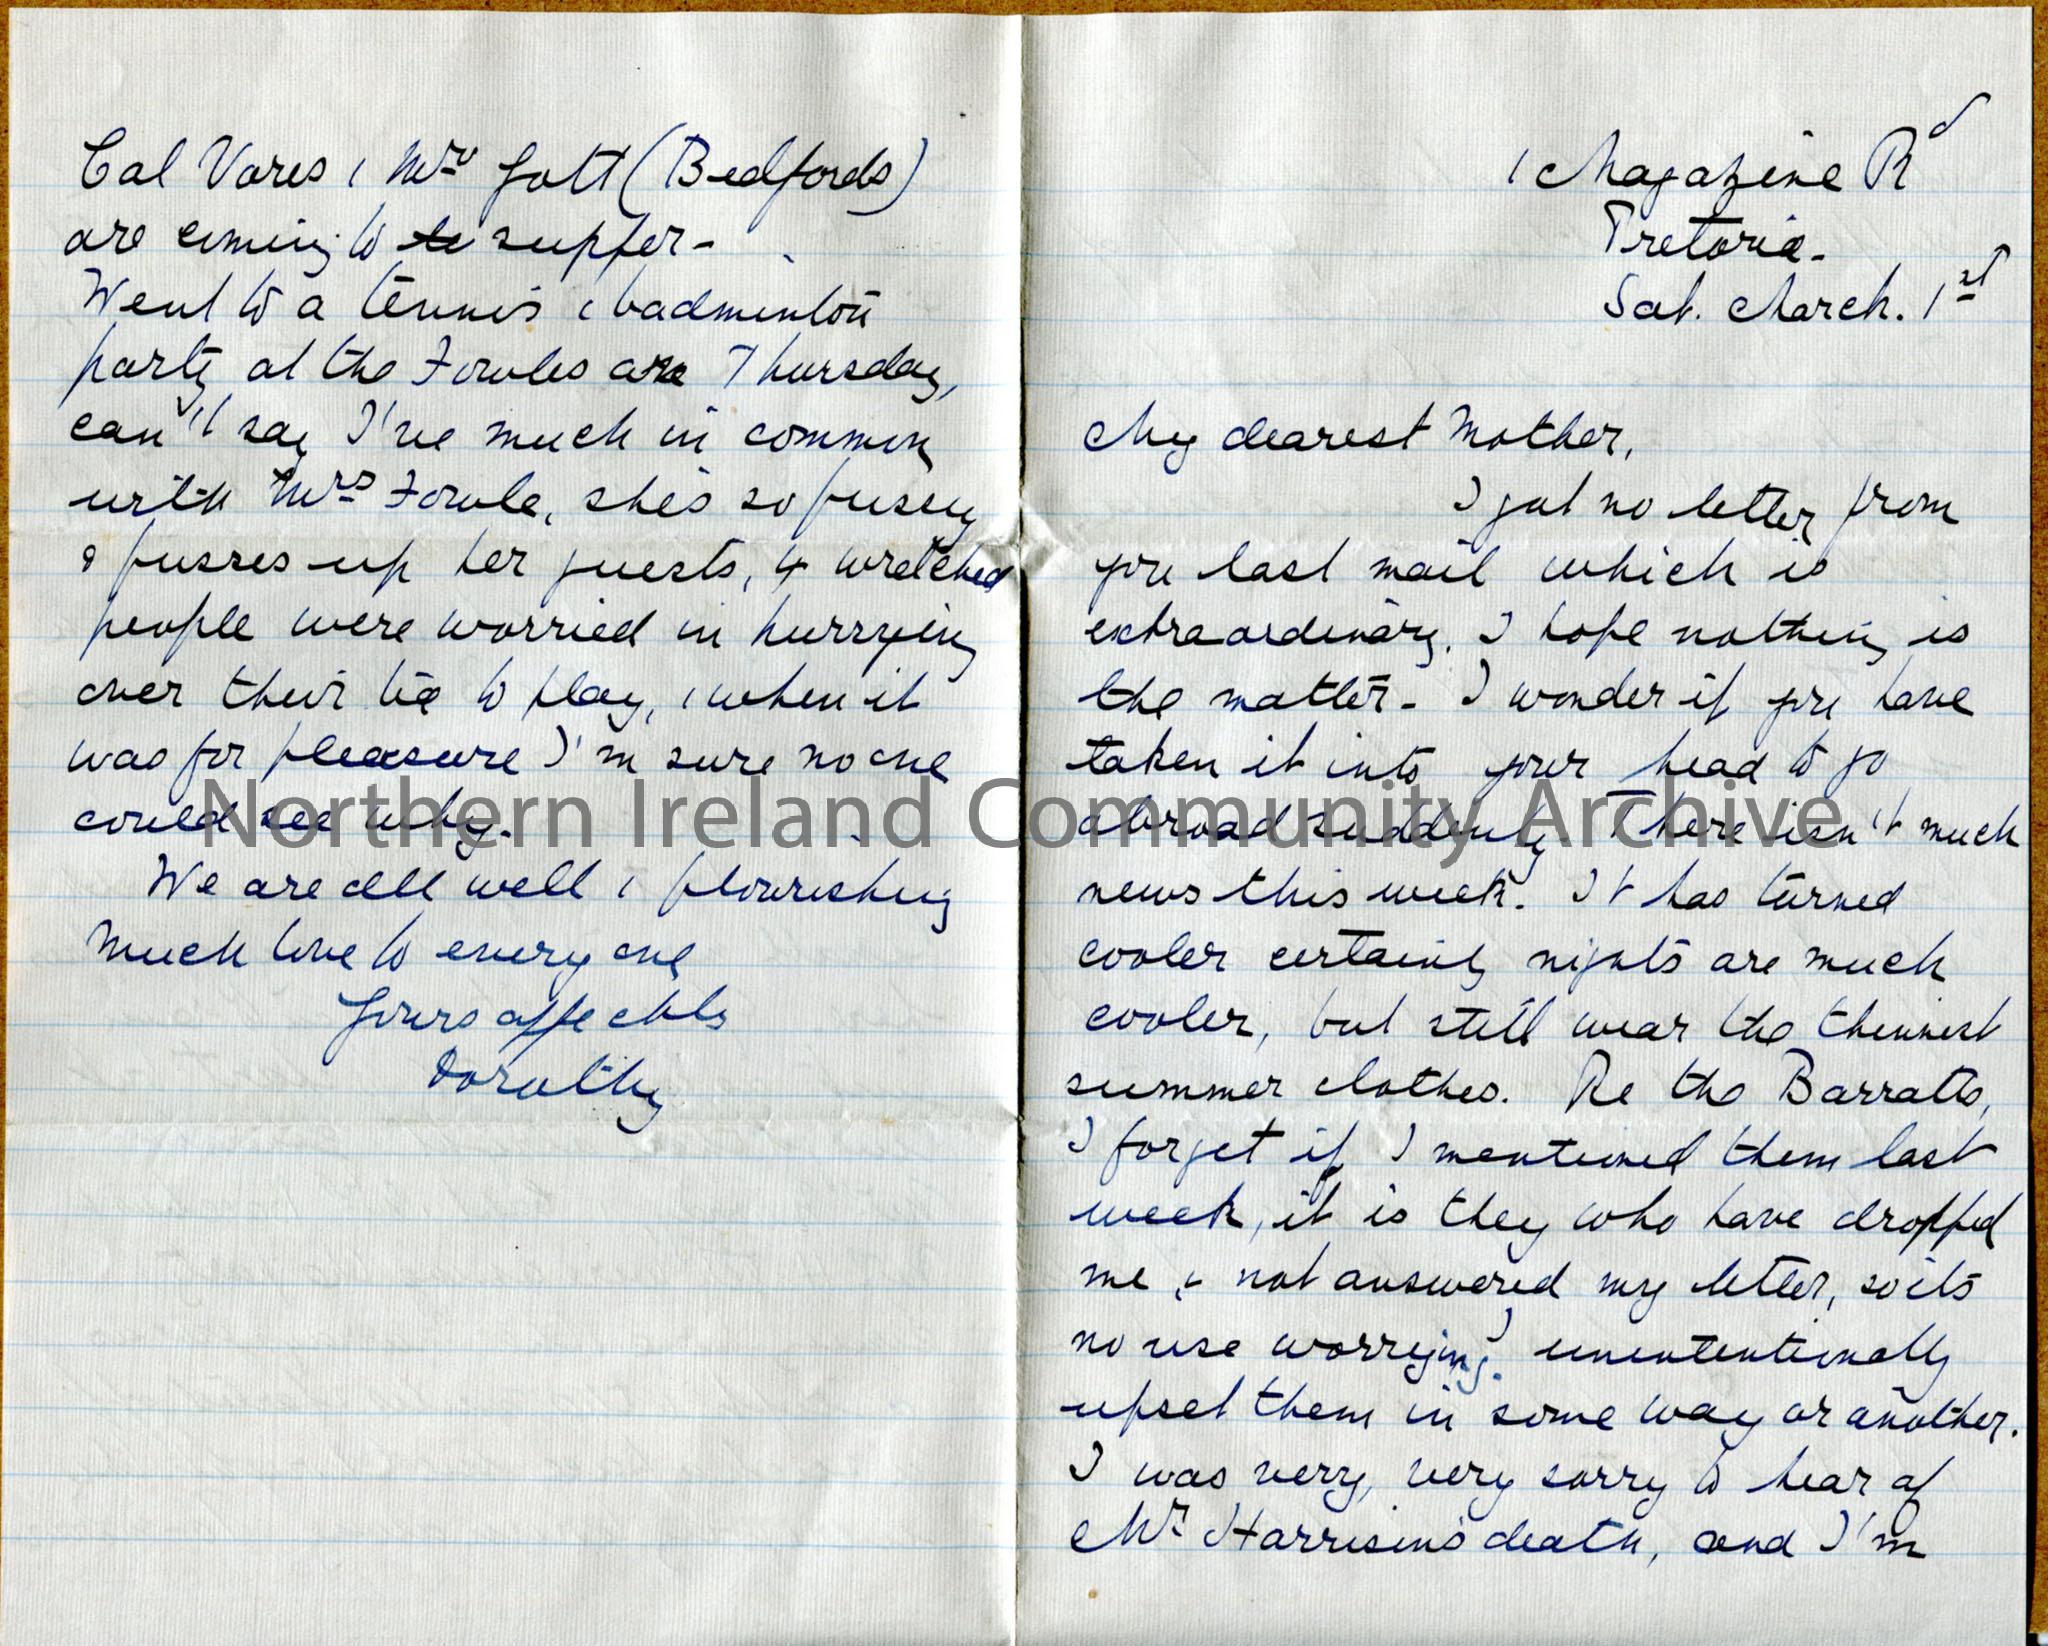 Cal Vares & Mrs Gott (Bedfords)
are coming to to supper -
Went to a tennis & badminton
party at the Fowles on Thursday,
can't say I've much in common
with Mrs Fowle, she's so fussy
& fusses up her guests, 4 wretched
people were worried in hurrying
over their tea to play, & when it
was for pleasure I'm sure no one
could see why.
We are all well & flourishing
Much love to every one
Yours affectly
Dorothy
1 Magazine Rd
Pretoria -
Sat. March. 1st
My dearest Mother,
I got no letter from
you last mail which is
extraordinary. I hope nothing is
the matter - I wonder if you have
taken it into your head to go
abroad suddenly There isn't much
news this week. It has turned
cooler certainly nights are much
cooler, but still wear the thinnest
summer clothes. Re the Barratts,
I forget if I mentioned them last
week, it is they who have dropped
me & not answered my letter, so its
no use worrying. I unintentionally
upset them in some way or another.
I was very, very sorry to hear of
Mr Harrison's death, and I'm
Northern Ireland Community Archive